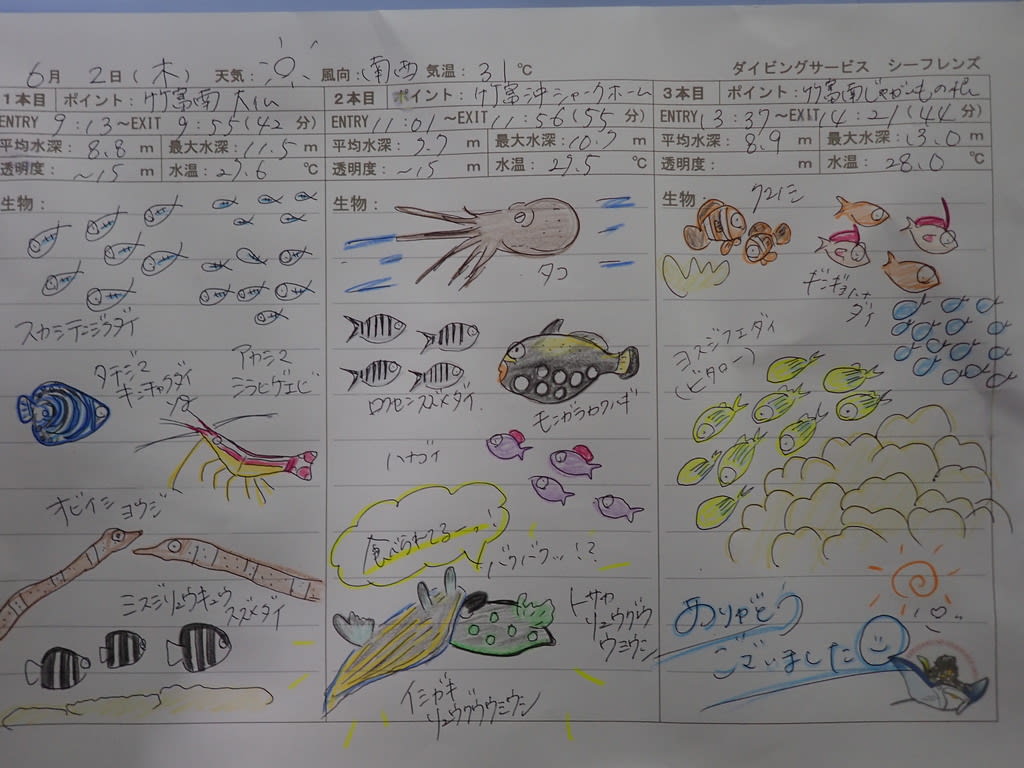 6月 2日(木) 天気: 風向:南西 気温:31℃ ダイビングサービス シーフレンズ
1本目 ポイント:竹富南 大仏
ENTRY 9:13~EXIT 9:55(42分)
平均水深:8.8m 最大水深:11.5m
透明度:~15m 水温:27.6℃
生物:
スカシテンジクダイ
タテジマ
キンチャクダイ
アカシマ
シラヒゲエビ
オビイシヨウジ
ミスジリュウキュウ
スズメダイ
2本目 ポイント:竹富沖シャークホーム
ENTRY 11:01~EXIT 11:56(55分)
平均水深:7.7m 最大水深:10.7m
透明度:~15m 水温:27.5℃
生物:
タコ
ロクセンスズメダイ
モンガラカワハギ
ハナゴイ
食べられてるーっ!
バクバクッ…!?
トサカ
リュウグウ
ウミウシ
イシガキ
リュウグウウミウシ
3本目 ポイント:竹富南じゃがーものポイ
ENTRY 13:37~EXIT 14:21(44分)
平均水深:8.9m 最大水深:13.0m
透明度: m 水温:28.0℃
生物:
クマノミ
キンギョハナ
ダイ
ヨスジフエダイ
(ビタロー)
ありがとう
ございました